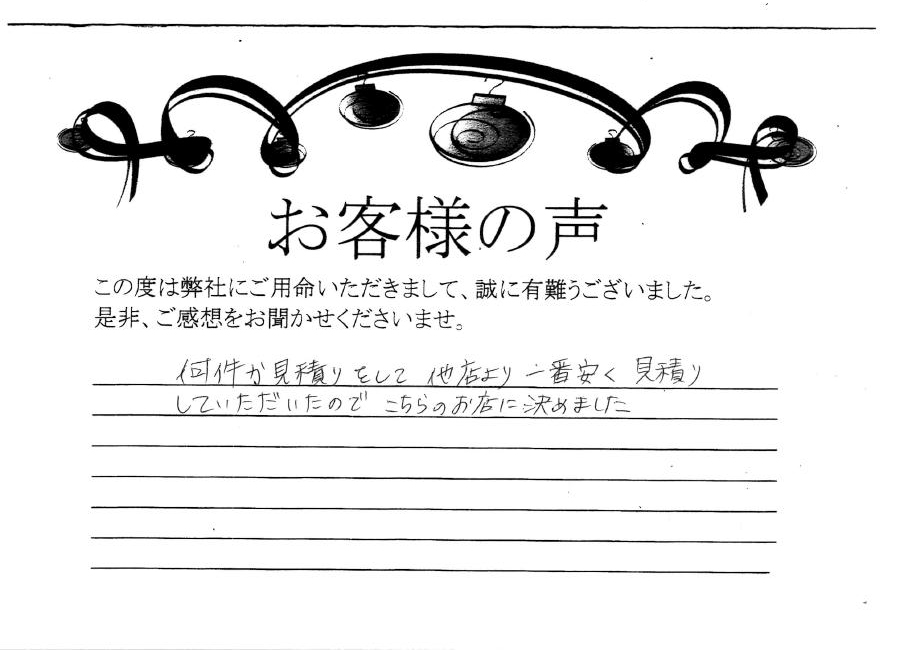 お客様の声
この度は弊社にご用命いただきまして、誠に有難うございました。
是非、ご感想をお聞かせくださいませ。
何件か見積りをして 他店より 一番安く 見積り
していただいたので こちらのお店に決めました